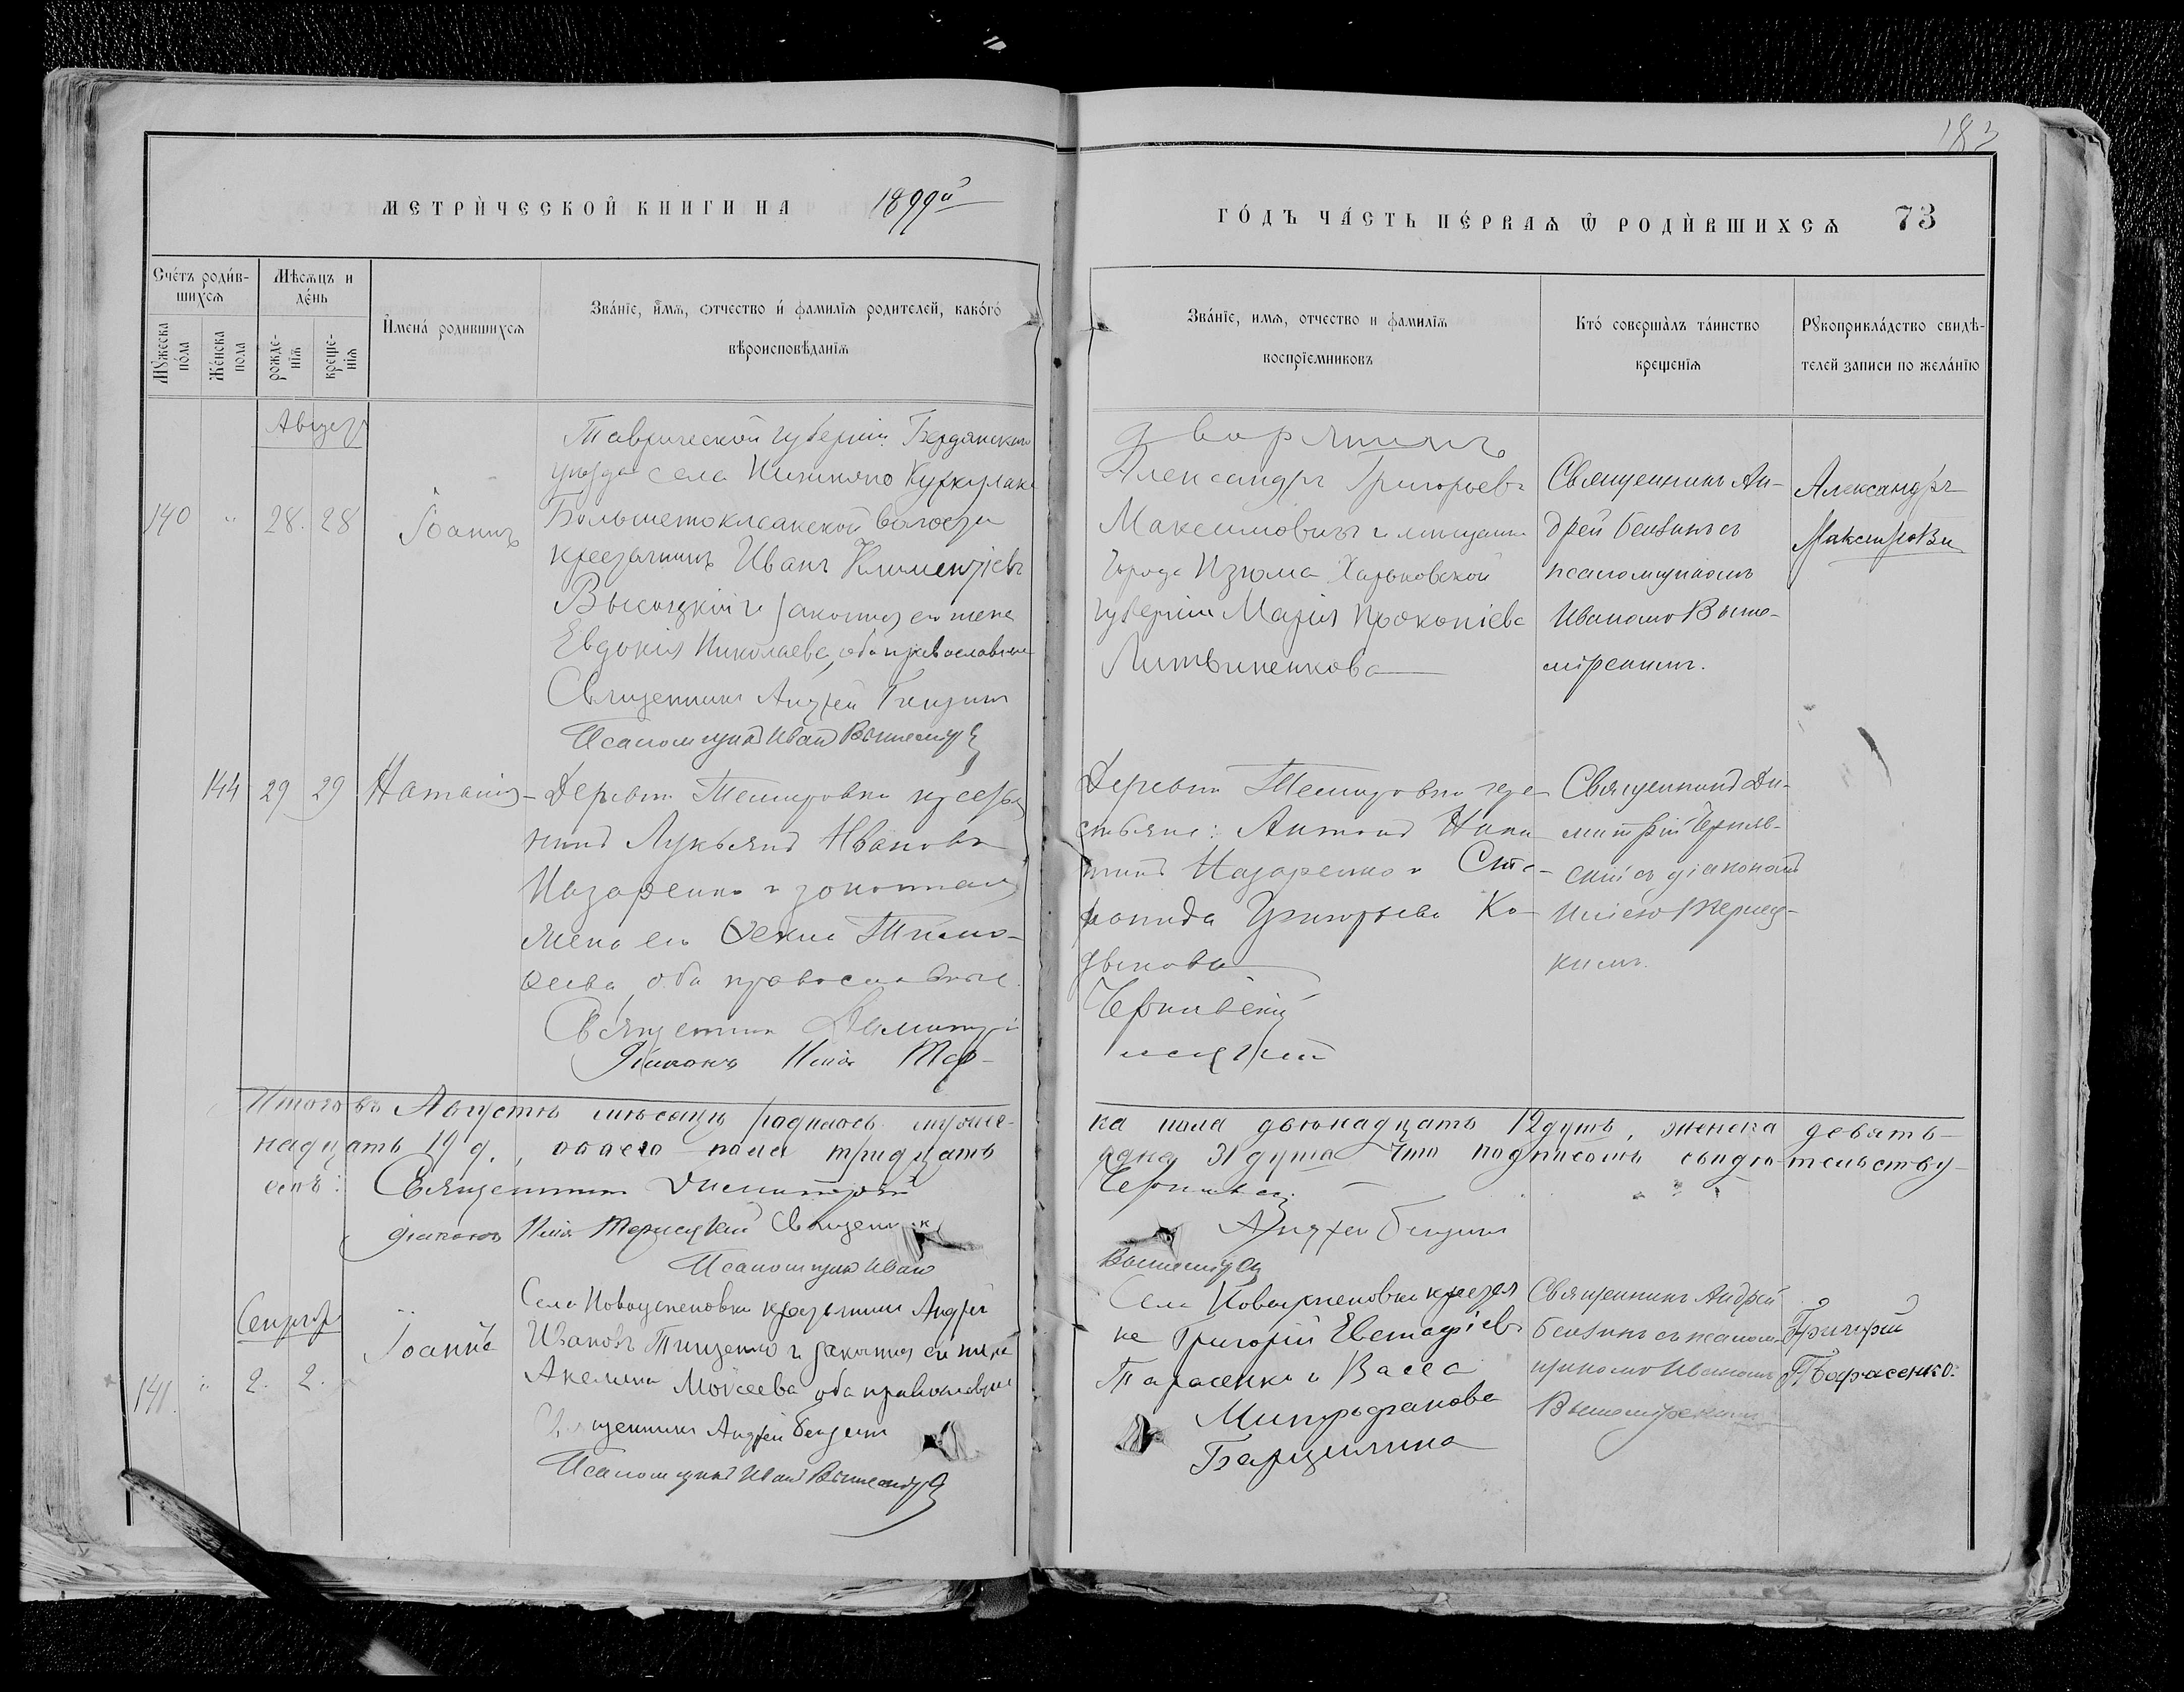 183
МЕТРИЧЕСКОЙ КНИГИ НА 1899й
ГОДЪ ЧАСТЬ ПЕРВАѦ Ѿ РОДИВШИХСѦ 73
Счетъ родив-
шихсѧ
Мѣсѧцъ и
день
Мꙋжеска
пола
Женска
пола
рожде-
нїѧ
креще-
нїѧ
Имена родившихсѧ
Званїе, имѧ, ѻтчество и фамилїѧ родителей, какого
вѣроисповѣданїѧ
Званїе, имѧ, отчество и фамилїѧ
воспрїемниковъ
Кто совершалъ таинство
крещенїѧ
Рꙋкоприкладство свидѣ-
телей записи по желанїю
Август
140 " 28. 28
Іоаннъ
Таврической губерніи Бердянскаго
уѣзда села Нижняго Куркулака
Большетокмакской волости
крестьянинъ Иванъ Климентіевъ
Высоцкій и законная его жена
Евдокія Николаева, оба православные
Священникъ Андрей Бензинъ
Псаломщикъ Иванъ
дворянинъ
Александръ Григорьевъ
Максимовичъ и мѣщанка
города Изюма Харьковской
губерніи Марія Прокопіева
Литвиненкова
Священникъ Ан-
дрей Бензинъ съ
псаломщикомъ
Иваномъ Выше-
мірскимъ.
Александръ
144 29 29
Наталія
Деревни Темировки крестья
нинъ Лукьянъ Ивановъ
Назаренко и законная
жена его Ѳекла Тимо-
ѳеева, оба православные.
Священникъ Димитрій
Діаконъ Илія Тер-
Деревни Темировки кре-
стьяне: Антонъ
Назаренко и Сте-
фанида Григорьева Ко-
Чернявскій
Священникъ Ди-
митрій Черняв-
скій съ діакономъ
Иліею
кимъ.
Итого въ Августѣ мѣсяцѣ родилось мужес-
ка пола двѣнадцать 12 душъ, женска девят-
надцать 19 д., обаего пола тридцать
одна 31 душа Что подписомъ свидѣтельству-
емъ:
Священникъ Димитрій
Чернявскій
діаконъ Илія Священник
Андрей Бензинъ
Псаломщикъ Иванъ
Сентябр
141. " 2. 2.
Іоаннъ
Села Новоуспеновки крестьянинъ Андрей
Ивановъ Тищенко и законная его жена
Акелина Моисеева оба православные
Священникъ Андрей Бензинъ
Псаломщикъ Иванъ
Села Новоуспеновки крестья
не Григорій Евстафіевъ
Тарасенко и Васса
Митрофанова
Священникъ Андрей
Бензинъ съ псалом
щикомъ Иваномъ
Вышемірскимъ
Григорій
Тарасенко.